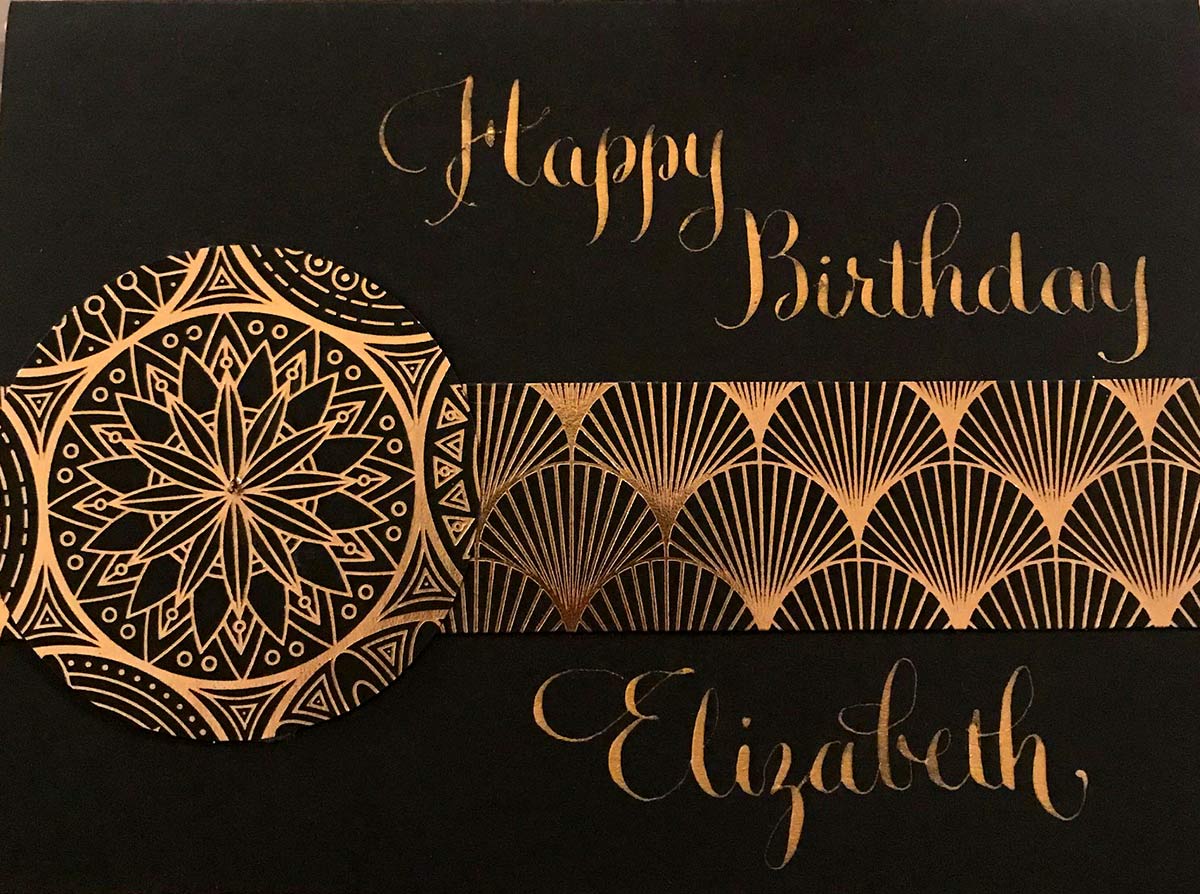 Happy
Birthday
Elizabeth